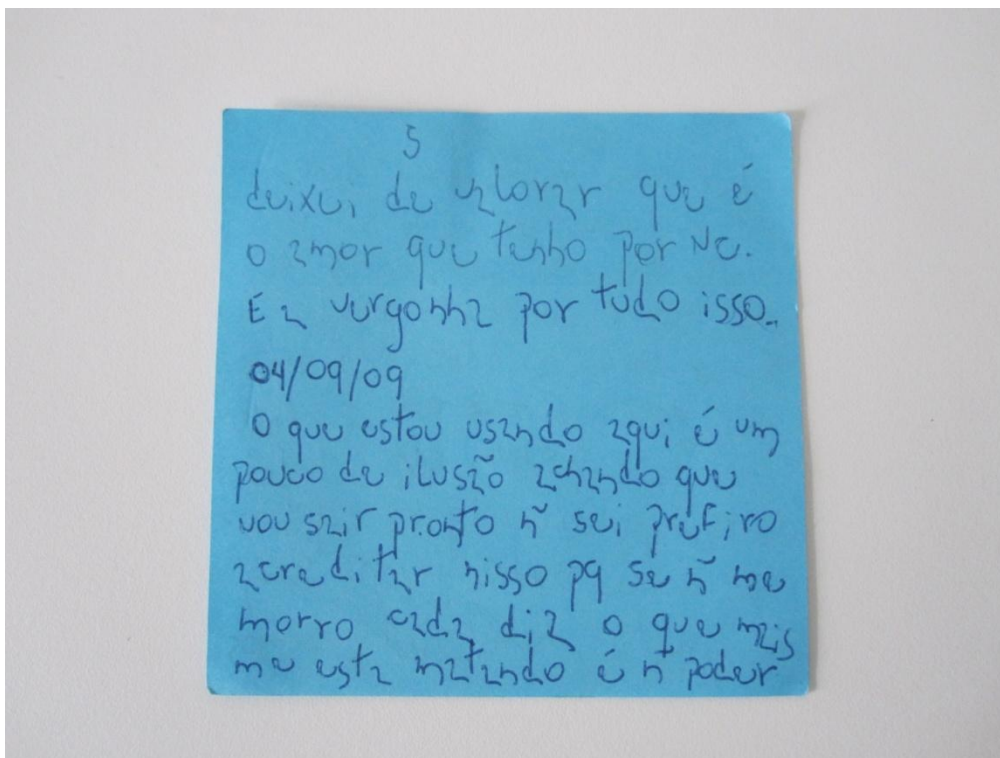 5
deixei de valorar que é
o amor que tenho por Ne.
E a vergonha por tudo isso..
04/09/09
O que estou usando aqui é um
pouco de ilusão achando que
vou sair pronto ñ sei prefiro
acreditar nisso pq se ñ me
morro cada dia o que mais
me esta matando é ñ poder